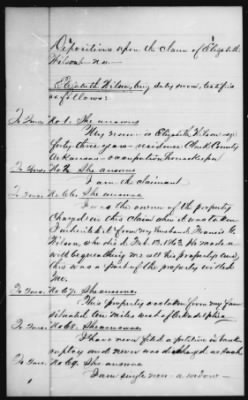 Depositions upon the claim of Elizabeth
Wilson
Elizabeth Wilson, being duly sworn, testifies
as follows:
To Inter. No 1. She answers
My name is Elizabeth Wilson age
forty three years residence Clark County
Arkansas occupation housekeeper
To Inter. No She answers
I am the claimant
To Inter. No She answers
I was the owner of the property
charged in this claim when it was taken
I inherited it from my husband, Francis G.
Wilson, who died Feb. 1863. He made a
will bequeathing me all his property and
this was a part of the property willed
me.
To Inter. No 67. She answers
This property was taken from my farm
situated ten miles west of Arkadelphia
To Inter. No 68. She answers
I have never filed a petition in bank-
ruptcy and never was discharged as bankrupt
To Inter. No 69. She answers
I am single now - a widow -